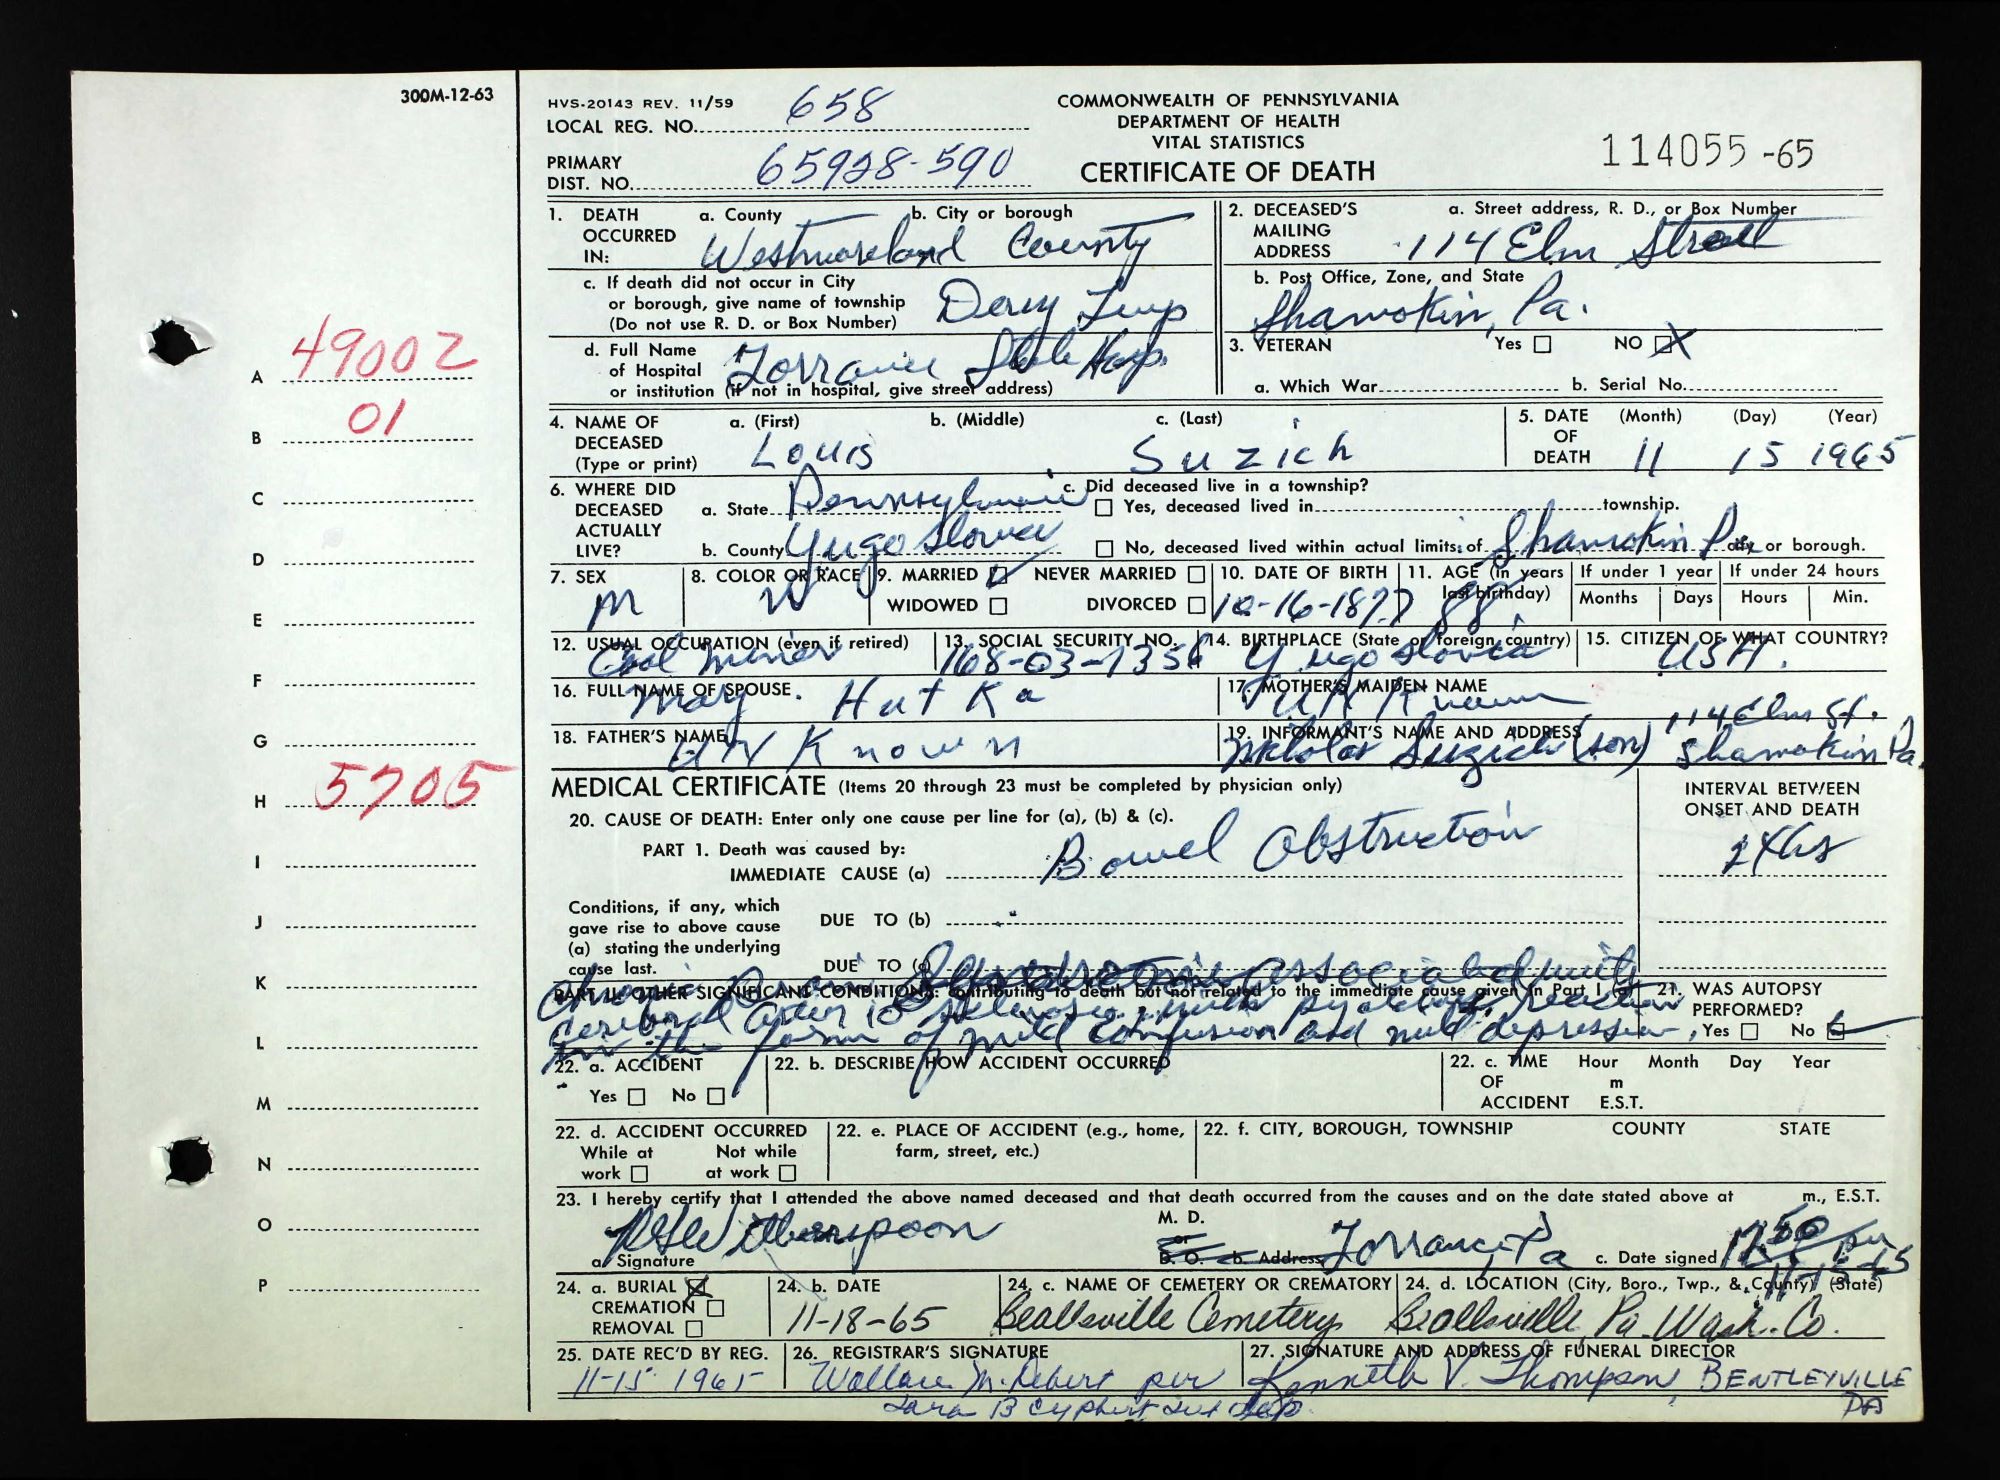 300M-12-63
HVS-20143 REV. 11/59
LOCAL REG. NO. 658
PRIMARY
DIST. NO. 65928-590
COMMONWEALTH OF PENNSYLVANIA
DEPARTMENT OF HEALTH
VITAL STATISTICS
CERTIFICATE OF DEATH
114055-65
A 49002
B 01
C
D
E
F
G
H 5705
I
J
K
L
M
N
O
P
1. DEATH OCCURRED IN: a. County b. City or borough
Westmoreland County
c. If death did not occur in City
or borough, give name of township
(Do not use R. D. or Box Number) Derry Twp
d. Full Name
of Hospital
or institution (if not in hospital, give street address) Torrance State Hosp.
2. DECEASED'S MAILING ADDRESS a. Street address, R. D., or Box Number
114 Elm Street
b. Post Office, Zone, and State
Shamokin, Pa.
3. VETERAN Yes NO X
a. Which War b. Serial No.
4. NAME OF DECEASED (Type or print) a. (First) b. (Middle) c. (Last)
Louis Suzich
5. DATE OF DEATH (Month) (Day) (Year)
11 15 1965
6. WHERE DID DECEASED ACTUALLY LIVE?
a. State Pennsylvania
b. County Yugoslovia
c. Did deceased live in a township?
Yes, deceased lived in township.
No, deceased lived within actual limits of Shamokin Pa city or borough.
7. SEX M
8. COLOR OR RACE W
9. MARRIED NEVER MARRIED
WIDOWED DIVORCED
10. DATE OF BIRTH 10-16-1877
11. AGE (in years last birthday) 88
If under 1 year Months Days
If under 24 hours Hours Min.
12. USUAL OCCUPATION (even if retired) Coal miner
13. SOCIAL SECURITY NO. 168-03-7356
14. BIRTHPLACE (State or foreign country) Yugoslovia
15. CITIZEN OF WHAT COUNTRY? USA.
16. FULL NAME OF SPOUSE. Mary Hutka
17. MOTHER'S MAIDEN NAME UnKnown
18. FATHER'S NAME UNKnown
19. INFORMANT'S NAME AND ADDRESS Nicholas Suzich (son) 114 Elm St. Shamokin Pa.
MEDICAL CERTIFICATE (Items 20 through 23 must be completed by physician only)
INTERVAL BETWEEN
ONSET AND DEATH
20. CAUSE OF DEATH: Enter only one cause per line for (a), (b) & (c).
PART 1. Death was caused by:
IMMEDIATE CAUSE (a) Bowel Obstruction 24hs
Conditions, if any, which
gave rise to above cause
(a) stating the underlying
cause last.
DUE TO (b)
DUE TO (c)
PART II. OTHER SIGNIFICANT CONDITIONS: contributing to death but not related to the immediate cause given in Part I (a)
Chronic Brain Syndrome associated with
Cerebral arterio sclerosis with psychotic reaction
in the form of mild confusion and mild depression.
21. WAS AUTOPSY
PERFORMED?
Yes No
22. a. ACCIDENT
Yes No
22. b. DESCRIBE HOW ACCIDENT OCCURRED
22. c. TIME Hour Month Day Year
OF m
ACCIDENT E.S.T.
22. d. ACCIDENT OCCURRED
While at work Not while at work
22. e. PLACE OF ACCIDENT (e.g., home,
farm, street, etc.)
22. f. CITY, BOROUGH, TOWNSHIP COUNTY STATE
23. I hereby certify that I attended the above named deceased and that death occurred from the causes and on the date stated above at m., E.S.T.
a. Signature Witherspoon
M. D.
or
D. O. b. Address Torrance Pa
c. Date signed 11-15-65
24. a. BURIAL X
CREMATION
REMOVAL
24. b. DATE
11-18-65
24. c. NAME OF CEMETERY OR CREMATORY
Beallsville Cemetery
24. d. LOCATION (City, Boro., Twp., & County) (State)
Beallsville, Pa. Wash. Co.
25. DATE REC'D BY REG.
11-15-1965
26. REGISTRAR'S SIGNATURE
Wallace M. per
27. SIGNATURE AND ADDRESS OF FUNERAL DIRECTOR
Kenneth V. Thompson, BENTLEYVILLE PA